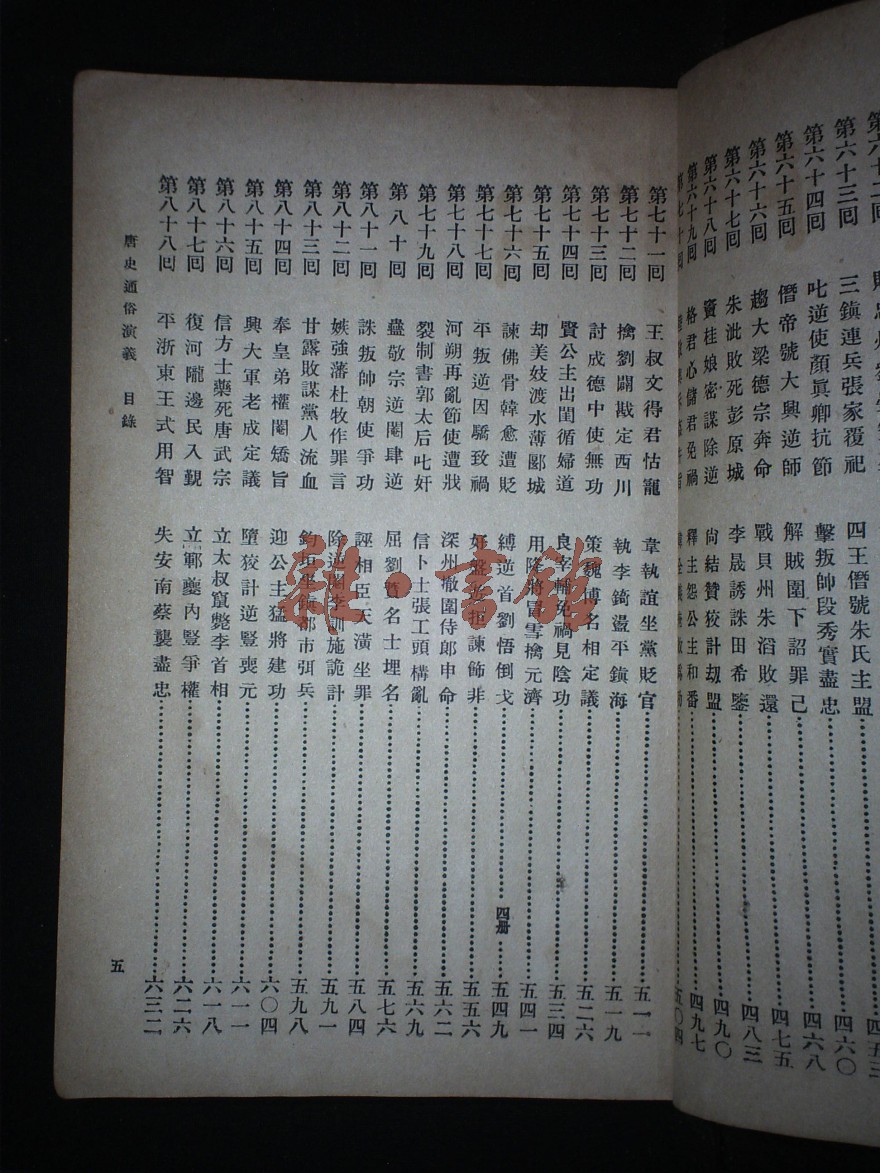 四王僭號朱氏主盟
第六十三囘 三鎭連兵張家覆祀 擊叛帥段秀實盡忠 四六〇
第六十四囘 叱逆使顏眞卿抗節 四六八
第六十五囘 僭帝號大興逆師 解賊圍下詔罪己 四七五
第六十六囘 趨大梁德宗奔命 戰貝州朱滔敗還 四八三
第六十七囘 朱泚敗死彭原城 李晟誘誅田希鑒 四九〇
第六十八囘 竇桂娘密謀除逆 尙結贊狡計刼盟 四九七
第六十九囘 格君心儲君免禍 釋主怨公主和番 五〇四
第七十一囘 王叔文得君怙寵 韋執誼坐黨貶官 五一一
第七十二囘 擒劉闢戡定西川 執李錡盪平鎭海 五一九
第七十三囘 討成德中使無功 策魏博名相定議 五二六
第七十四囘 賢公主出閨循婦道 良宰輔免禍見陰功 五三四
第七十五囘 却美妓渡水薄郾城 用降將冒雪擒元濟 五四一
第七十六囘 諫佛骨韓愈遭貶 縛逆首劉悟倒戈 四册 五四九
第七十七囘 平叛逆因驕致禍 好盤遊拒諫飾非 五五六
第七十八囘 河朔再亂節使遭戕 深州撤圍侍郎申命 五六二
第七十九囘 裂制書郭太后叱奸 信卜士張工頭構亂 五六九
第八十囘 蠱敬宗逆閹肆逆 屈劉蕡名士埋名 五七六
第八十一囘 誅叛帥朝使爭功 誣相臣天潢坐罪 五八四
第八十二囘 嫉強藩杜牧作罪言 除逆閹李訓施詭計 五九一
第八十三囘 甘露敗謀黨人流血 鈞垣坐鎭都市弭兵 五九八
第八十四囘 奉皇弟權閹矯旨 迎公主猛將建功 六〇四
第八十五囘 興大軍老成定議 墮狡計逆豎喪元 六一一
第八十六囘 信方士藥死唐武宗 立太叔竄斃李首相 六一八
第八十七囘 復河隴邊民入覲 立鄆夔內豎爭權 六二六
第八十八囘 平浙東王式用智 失安南蔡襲盡忠 六三二
唐史通俗演義 目錄
五
雜·書館